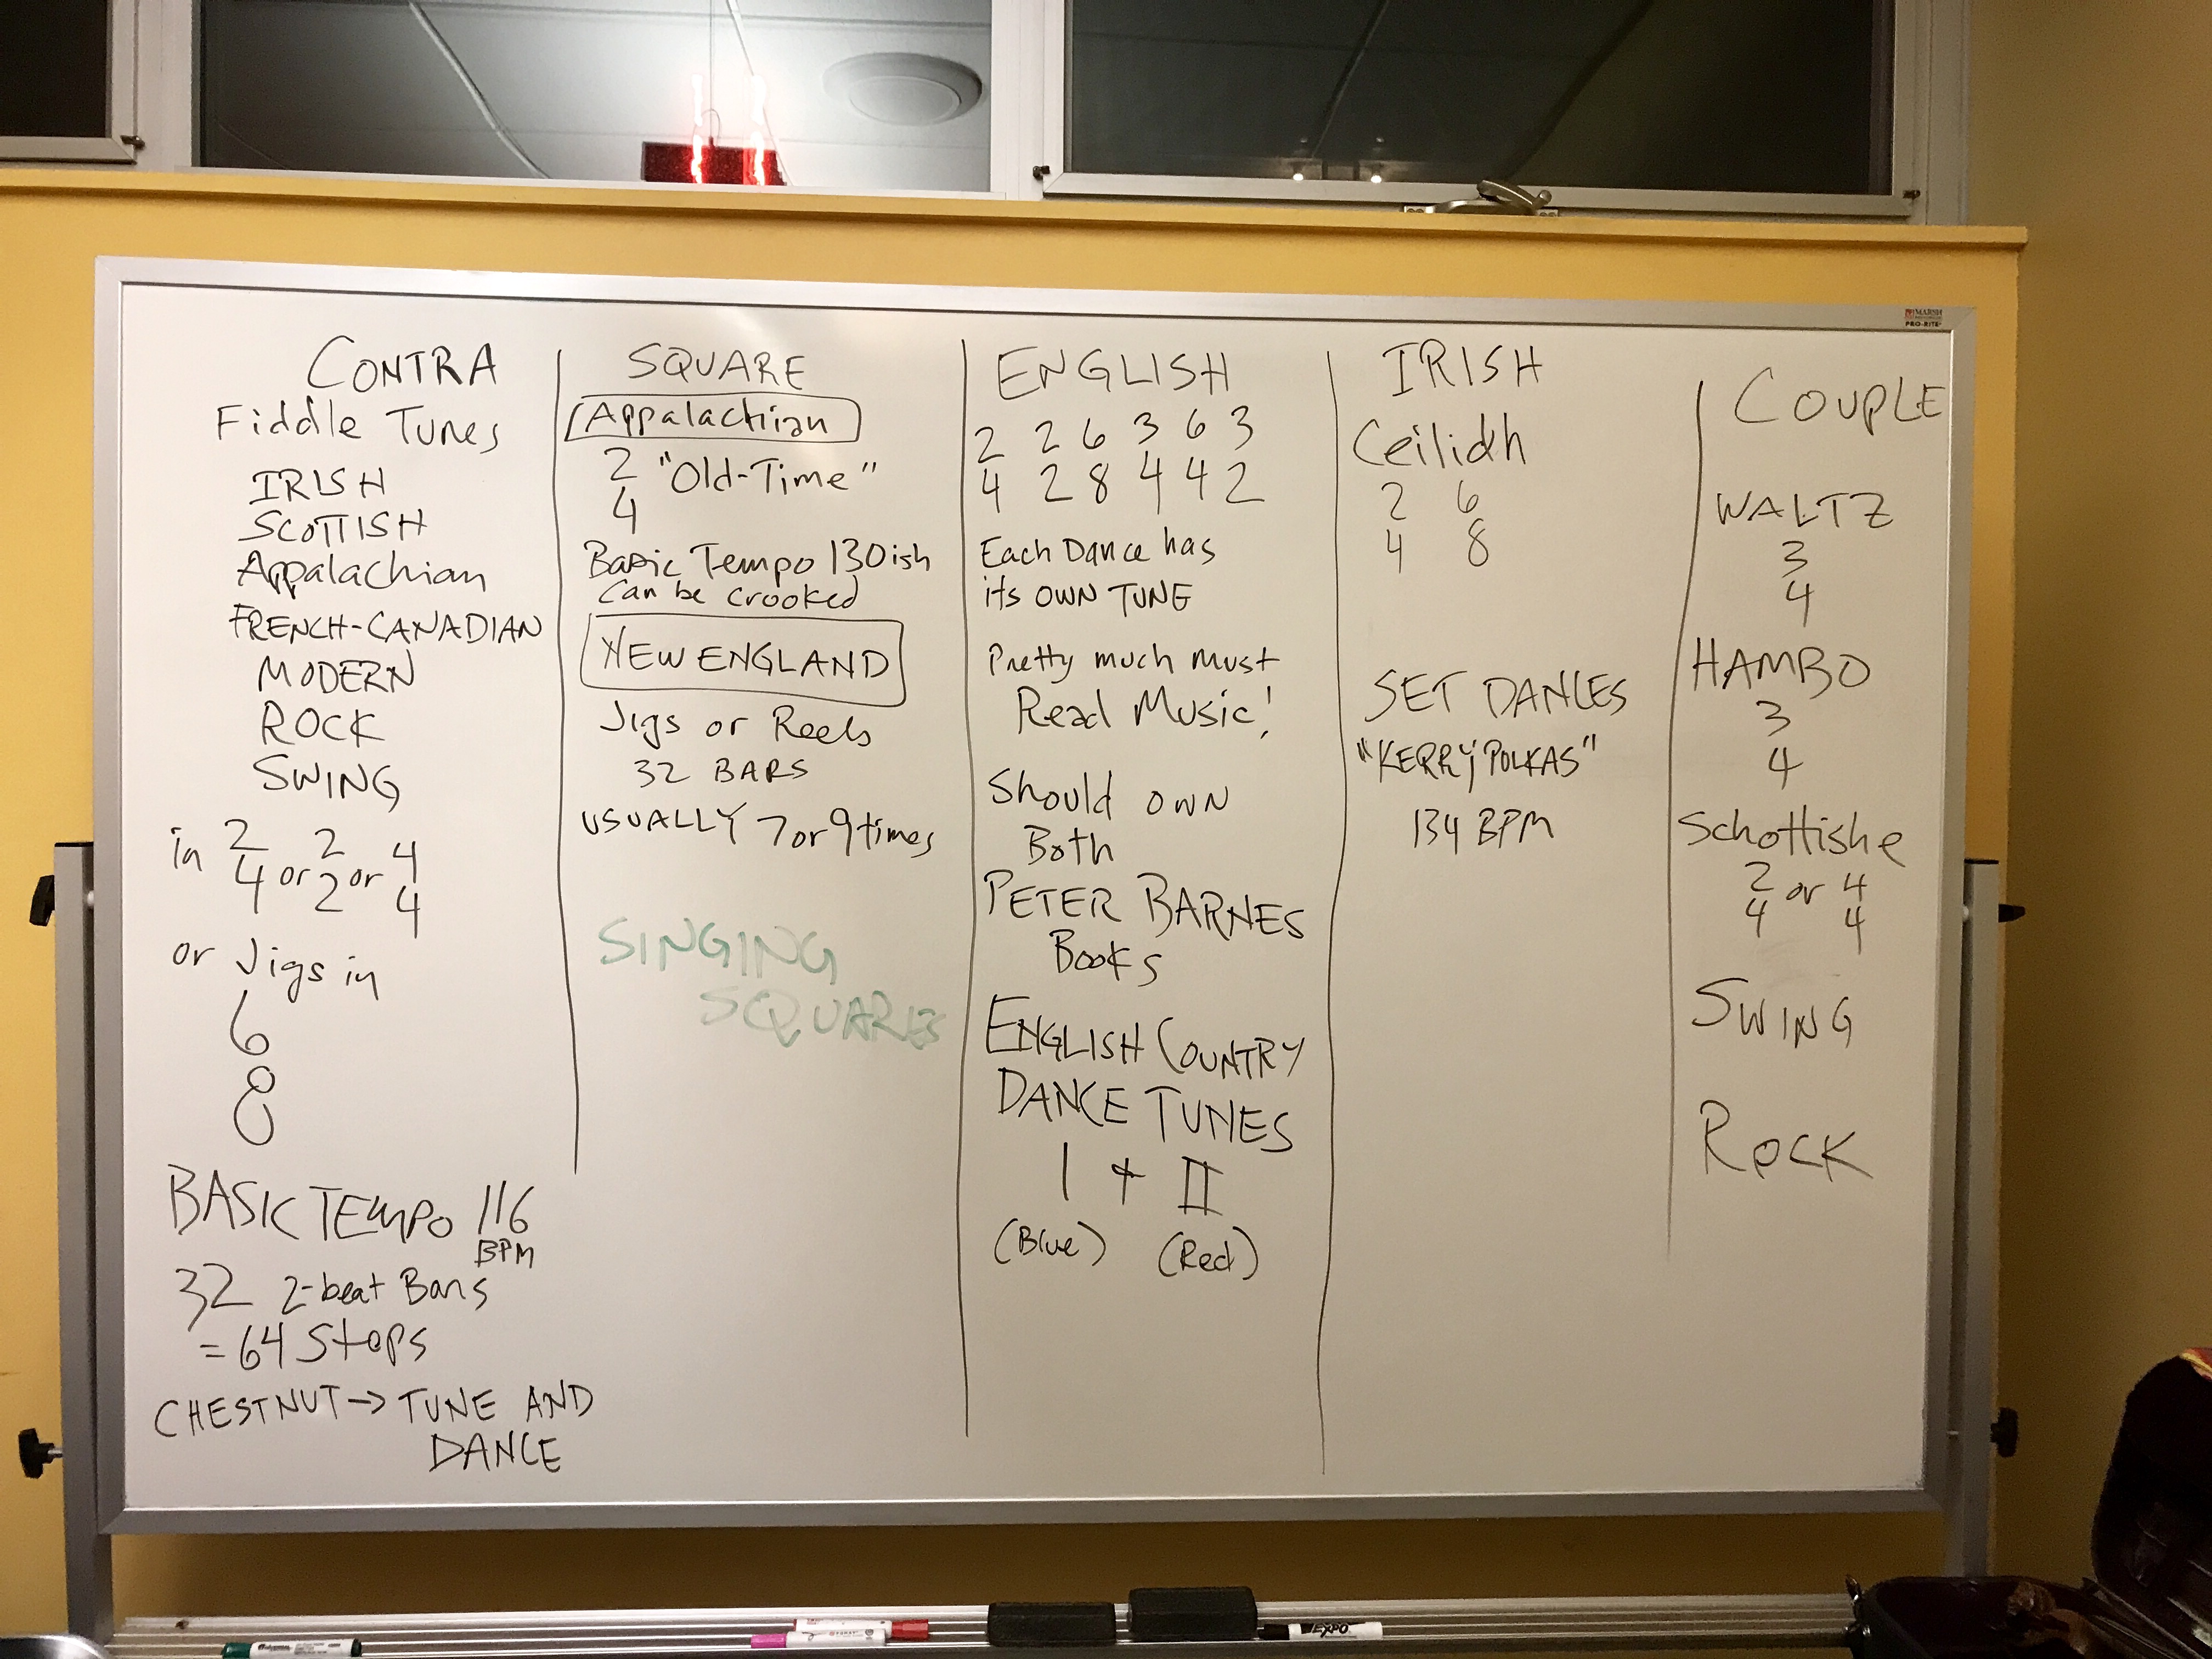 MARSH
PRO-RITE
CONTRA
Fiddle Tunes
IRISH
SCOTTISH
Appalachian
FRENCH-CANADIAN
MODERN
ROCK
SWING
in 2/4 or 2/2 or 4/4
or Jigs in
6
8
BASIC TEMPO 116
BPM
32 2-beat Bars
= 64 Steps
CHESTNUT → TUNE AND
DANCE
SQUARE
Appalachian
2/4 "Old-Time"
Basic Tempo 130ish
Can be crooked
NEW ENGLAND
Jigs or Reels
32 BARS
USUALLY 7 or 9 times
SINGING
SQUARES
ENGLISH
2 2 6 3 6 3
4 2 8 4 4 2
Each Dance has
its OWN TUNE
Pretty much must
Read Music!
Should own
Both
PETER BARNES
Books
ENGLISH COUNTRY
DANCE TUNES
I + II
(Blue) (Red)
IRISH
Ceilidh
2 6
4 8
SET DANCES
"KERRY POLKAS"
134 BPM
COUPLE
WALTZ
3
4
HAMBO
3
4
Schottishe
2/4 or 4/4
SWING
ROCK
EXPO